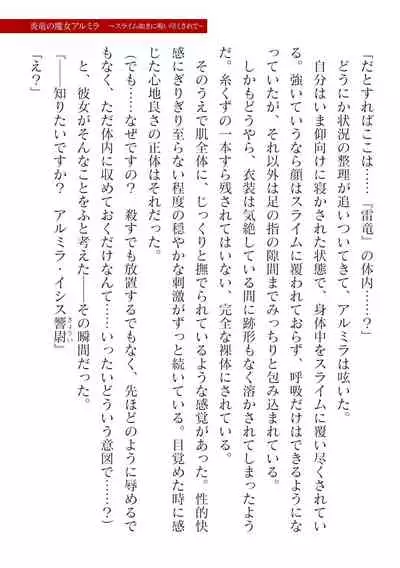 炎竜の魔女アルミラ　～スライム如きに喰い尽くされて～
「だとすればここは……『雷竜』の体内……？」
どうにか状況の整理が追いついてきて、アルミラは呟いた。
自分はいま仰向けに寝かされた状態で、身体中をスライムに覆い尽くされてい
る。強いていうなら顔はスライムに覆われておらず、呼吸だけはできるようにな
っていたが、それ以外は足の指の隙間までみっちりと包み込まれている。
しかもどうやら、衣装は気絶している間に跡形もなく溶かされてしまったよう
だ。糸くずの一本すら残されてはいない、完全な裸体にされている。
そのうえで肌全体に、じっくりと撫でられているような感覚があった。性的快
感にぎりぎり至らない程度の穏やかな刺激がずっと続いている。目覚めた時に感
じた心地良さの正体はそれだった。
（でも……なぜですの？　殺すでも放置するでもなく、先ほどのように辱めるで
もなく、ただ体内に収めておくだけなんて……いったいどういう意図で……？）
と、彼女がそんなことをふと考えた――その瞬間だった。
『――知りたいですか？　アルミラ・イシス響尉』
「え？」